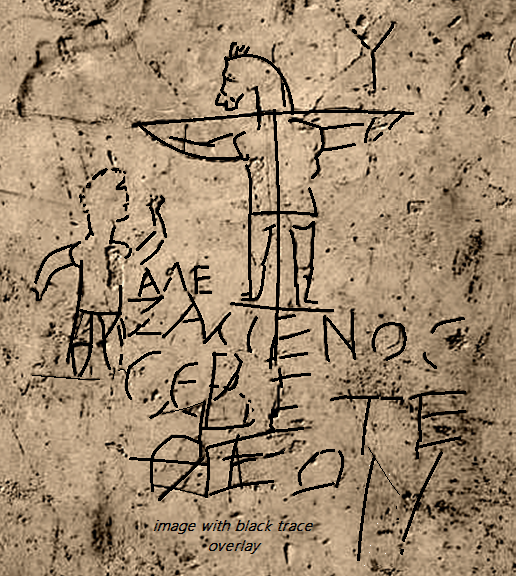 Υ
ΑΛΕ
ΞΑΜΕΝΟϹ
ϹΕΒΕΤΕ
ΘΕΟΝ
image with black trace
overlay